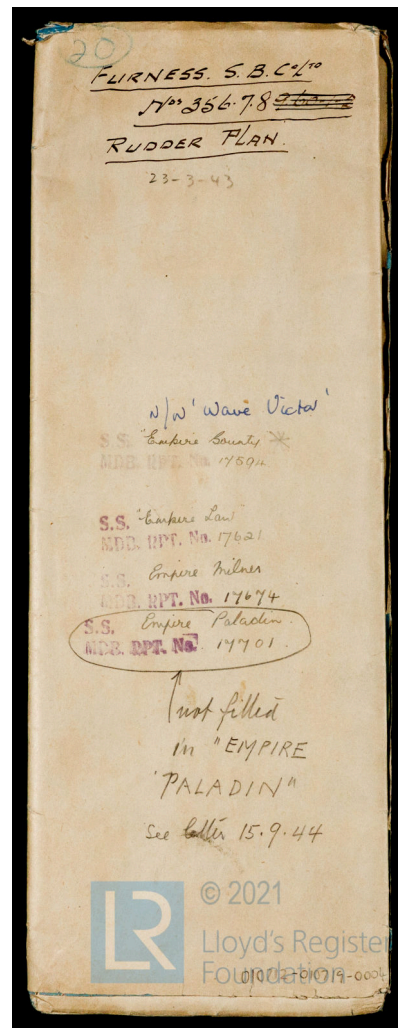 20
FURNESS. S. B. Co LTD
Nos 356.7.8
RUDDER PLAN.
23-3-43
N/N 'Wave Victor'
S.S. "Empire Bounty"
MDB. RPT. No. 17594
S.S. "Empire Law"
MDB. RPT. No. 17621
S.S. Empire Milner
MDB. RPT. No. 17674
S.S. Empire Paladin.
MDB. RPT. No. 17701.
not fitted
in "EMPIRE
PALADIN"
See letter 15.9.44
LR
© 2021
Lloyd's Register
Foundation